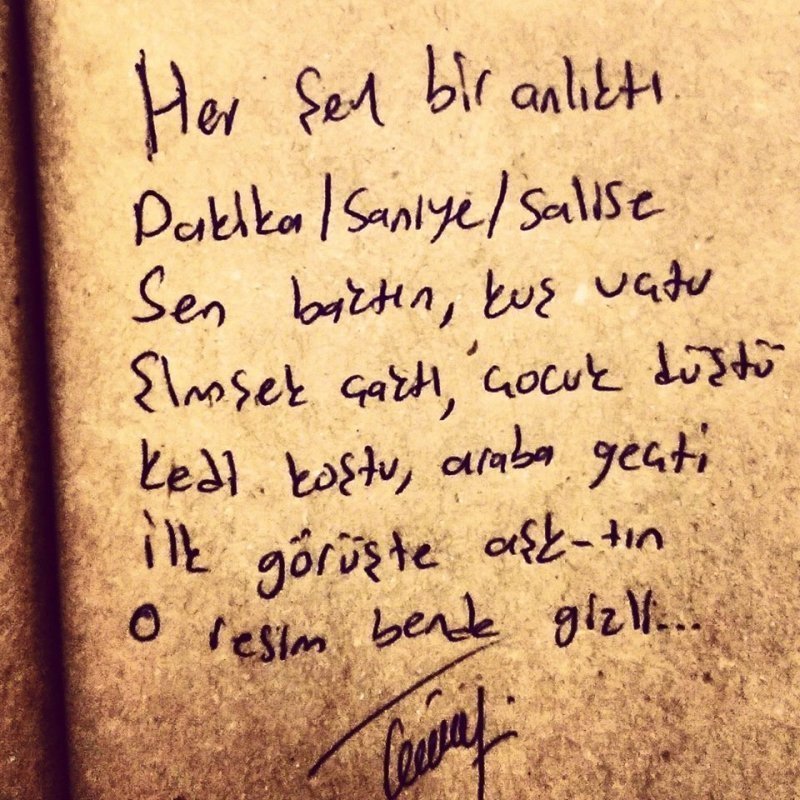 Her şey bir anlıktı
Dakika/Saniye/Salise
Sen baktın, kuş uçtu
Şimşek çaktı, çocuk düştü
Kedi koştu, araba geçti
İlk görüşte aşk-tın
O resim bende gizli...